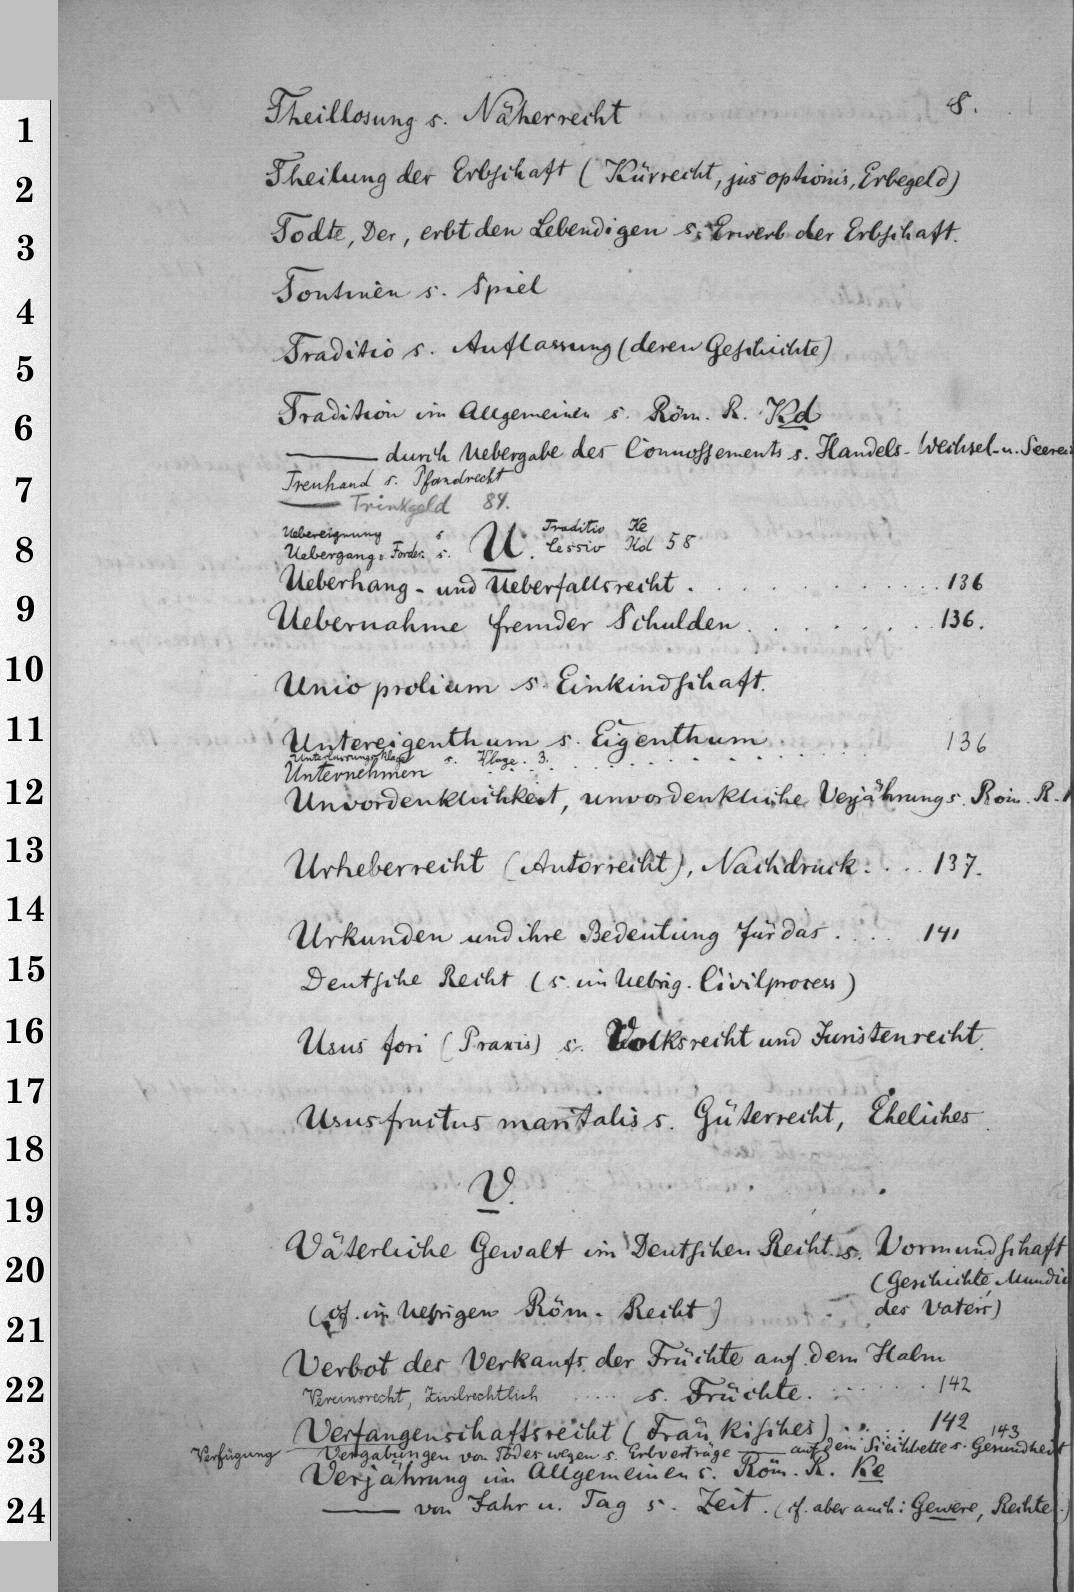 8.
1 Theillosung s. Näherrecht
2 Theilung der Erbschaft (Kürrecht, jus optionis, Erbegeld)
3 Todte, Der, erbt den Lebendigen s. Erwerb der Erbschaft.
4 Tontinen s. Spiel
5 Traditio s. Auflassung (deren Geschichte)
6 Tradition im Allgemeinen s. Röm. R. Kd
——— durch Uebergabe des Connossements s. Handels- Wechsel- u. Seerec
7 Treuhand s. Pfandrecht
—— Trinkgeld 84.
Uebereignung s Traditio Ke
8 Uebergang v. Forder. s. U. Cessio Kd 58
Ueberhang- und Ueberfallsrecht . . . . . . . . 136
9 Uebernahme fremder Schulden . . . . . . . 136.
10 Unio prolium s. Einkindschaft.
11 Untereigenthum s. Eigenthum
Unterlassungsklage s. Klage. 3.
Unternehmen . . . . . . . . . . 136
12 Unvordenklichkeit, unvordenkliche Verjährung s. Röm. R.
13 Urheberrecht (Autorrecht), Nachdruck . . . 137.
14 Urkunden und ihre Bedeutung für das . . . . 141
15 Deutsche Recht (s. im Uebrig. Civilprocess)
16 Usus fori (Praxis) s. Volksrecht und Juristenrecht.
17 Ususfructus maritalis s. Güterrecht, Eheliches.
18
19 V.
20 Väterliche Gewalt im Deutschen Recht s. Vormundschaft
(Geschichte, Mundiu
21 (cf. im Uebrigen Röm. Recht) des Vaters)
Verbot des Verkaufs der Früchte auf dem Halm
22 s. Früchte.
Vereinsrecht, Zivilrechtlich . . . . . . . . . . . 142
Verfangenschaftsrecht (Fränkisches) . . . . . 142
23 Verfügung Vergabungen von Todes wegen s. Erbverträge —— auf dem Siechbette s. Gesundheit 143
Verjährung im Allgemeinen s. Röm. R. Ke
24 ——— von Jahr u. Tag s. Zeit. (cf. aber auch: Gewere, Rechte .)